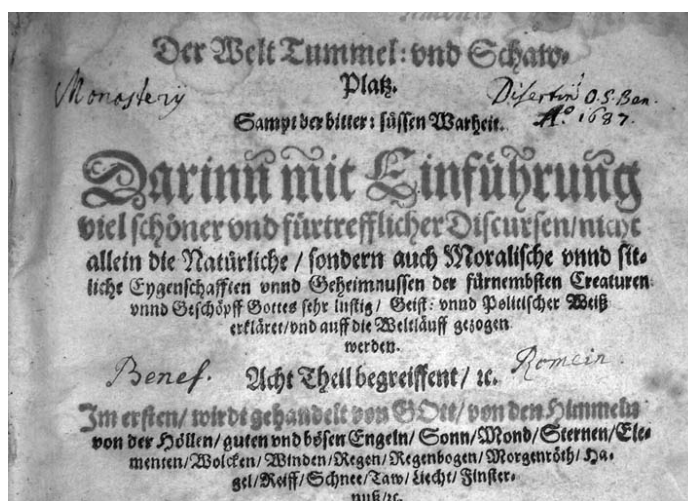 Der Welt Tummel: vnd Schaw-
Platz.
Monasterij
Disertin O. S. Ben.
Aº. 1687.
Sampt der bitter: süssen Warheit.
Darinn mit Einführung
viel schöner vnd fürtrefflicher Discursen / nicht
allein die Natürliche / sondern auch Moralische vnnd sit-
liche Eygenschafften vnnd Geheimnussen der fürnembsten Creaturen
vnnd Geschöpff Gottes sehr lustig / Geist: vnnd Politischer Weiß
erkläret / vnd auff die Weltläuff gezogen
werden.
Benef.
Romein.
Acht Theil begreiffent / ꝛc.
Im ersten / wirdt gehandelt von GOtt / von den Himmeln
von der Höllen / guten vnd bösen Engeln / Sonn / Mond / Sternen / Ele-
menten / Wolcken / Winden / Regen / Regenbogen / Morgenröth / Ha-
gel / Reiff / Schnee / Taw / Liecht / Finster-
nuß / ꝛc.